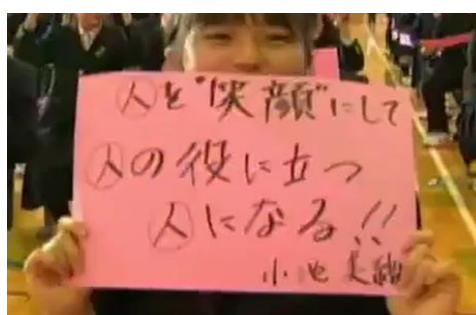 人を"笑顔"にして
人の役に立つ
人になる!!
小池